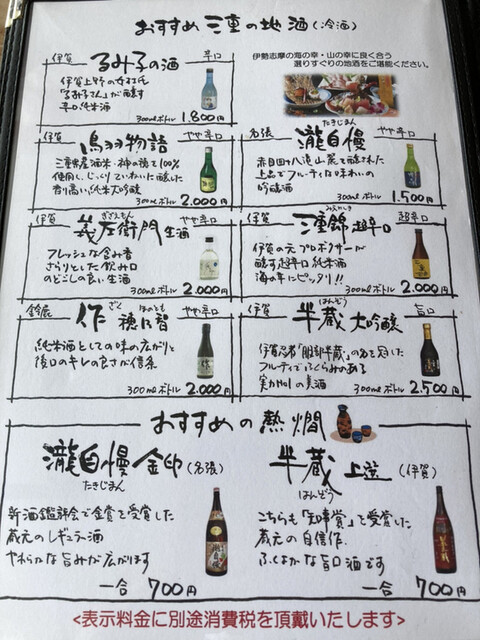 おすすめ 三重の地酒(冷酒)
伊勢志摩の海の幸・山の幸に良く合う
選りすぐりの地酒をご堪能ください。
伊賀 るみ子の酒 辛口
伊賀上野の女杜氏
「るみ子さん」が醸す
辛口純米酒
300mlボトル 1.800円
伊賀 鳥羽物語 やや辛口
三重県産酒米・神の穂を100%
使用し、じっくりていねいに醸した
香り高い純米大吟醸
300mlボトル 2.000円
名張 瀧自慢 やや辛口
たきじまん
赤目四十八滝山麓で醸された
上品でフルーティな味わいの
吟醸酒
300mlボトル 1.500円
伊賀 義左衛門 生酒 やや辛口
ぎざえもん
フレッシュな含み香
さらりとした飲み口
のどごしの良い生酒
300mlボトル 2.000円
伊賀 三重錦 超辛口 超辛口
みえにしき
伊賀の元プロボクサーが
醸す超辛口純米酒
海の幸にピッタリ!!
300mlボトル 2.000円
鈴鹿 作 穂乃智 やや辛口
ざく ほのとも
純米酒としての味の広がりと
後口のキレの良さが信条
300mlボトル 2.000円
伊賀 半蔵 大吟醸 旨口
はんぞう
伊賀忍者「服部半蔵」の名を冠した
フルーティでふくらみのある
実力No1の美酒
300mlボトル 2.500円
おすすめの熱燗
瀧自慢 金印 (名張)
たきじまん
新酒鑑評会で金賞を受賞した
蔵元のレギュラー酒
やわらかな旨みが広がります
一合 700円
半蔵 上選 (伊賀)
はんぞう
こちらも「知事賞」を受賞した
蔵元の自信作
ふくよかな旨口酒です
一合 700円
<表示料金に別途消費税を頂戴いたします>